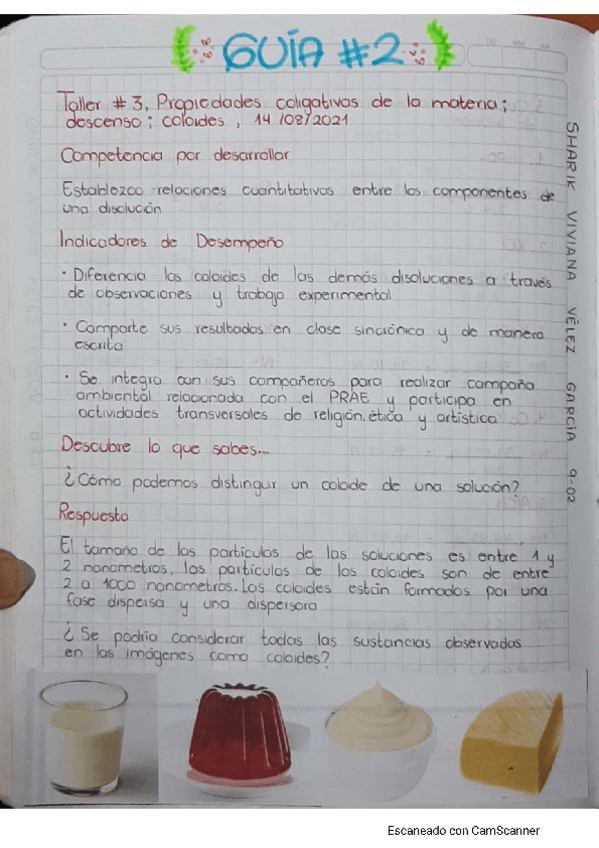 GUÍA #2
Taller # 3, Propiedades coligativas de la materia;
descenso; coloides, 14/08/2021
Competencia por desarrollar
Establezco relaciones cuantitativas entre los componentes de
una disolución
Indicadores de Desempeño
• Diferencia los coloides de las demás disoluciones a través
de observaciones y trabajo experimental
• Comparte sus resultados en clase sincrónica y de manera
escrita
• Se integra con sus compañeros para realizar campaña
ambiental relacionada con el PRAE y participa en
actividades transversales de religión, ética y artística
Descubre lo que sabes...
¿Cómo podemos distinguir un coloide de una solución?
Respuesta
El tamaño de las partículas de las soluciones es entre 1 y
2 nanometros, las partículas de los coloides son de entre
2 a 1000 nanometros. Los coloides están formados por una
fase dispersa y una dispersora
¿Se podría considerar todas las sustancias observadas
en las imágenes como coloides?
SHARIK VIVIANA VÉLEZ GARCÍA 9-02
Escaneado con CamScanner